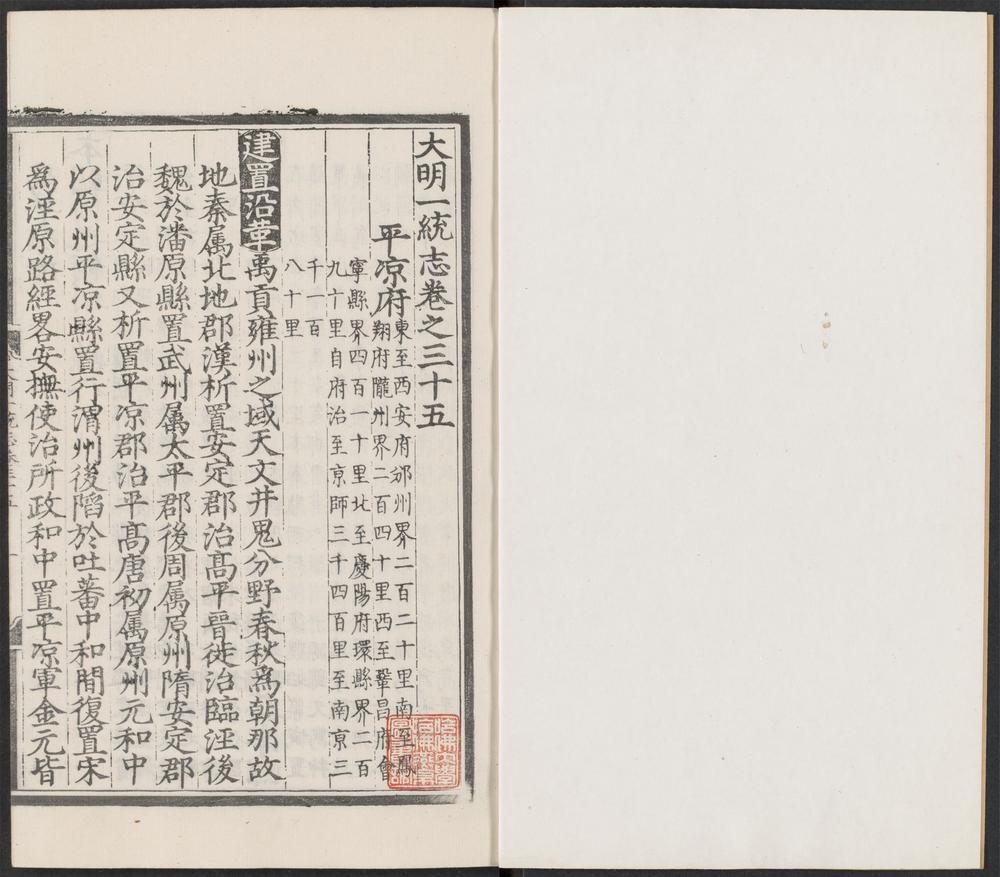 大明一統志卷之三十五
平凉府
東至西安府邠州界二百二十里南至鳳
翔府隴州界二百四十里西至鞏昌府會
寧縣界四百一十里北至慶陽府環縣界二百
九十里自府治至京師三千四百里至南京三
千一百
八十里
建置沿革禹貢雍州之域天文井鬼分野春秋爲朝那故
地秦属北地郡漢析置安定郡治髙平晉徙治臨涇後
魏於潘原縣置武州属太平郡後周属原州隋安定郡
治安定縣又析置平凉郡治平髙唐初属原州元和中
以原州平凉縣置行渭州後陷於吐蕃中和間復置宋
爲涇原路經畧安撫使治所政和中置平凉軍金元皆